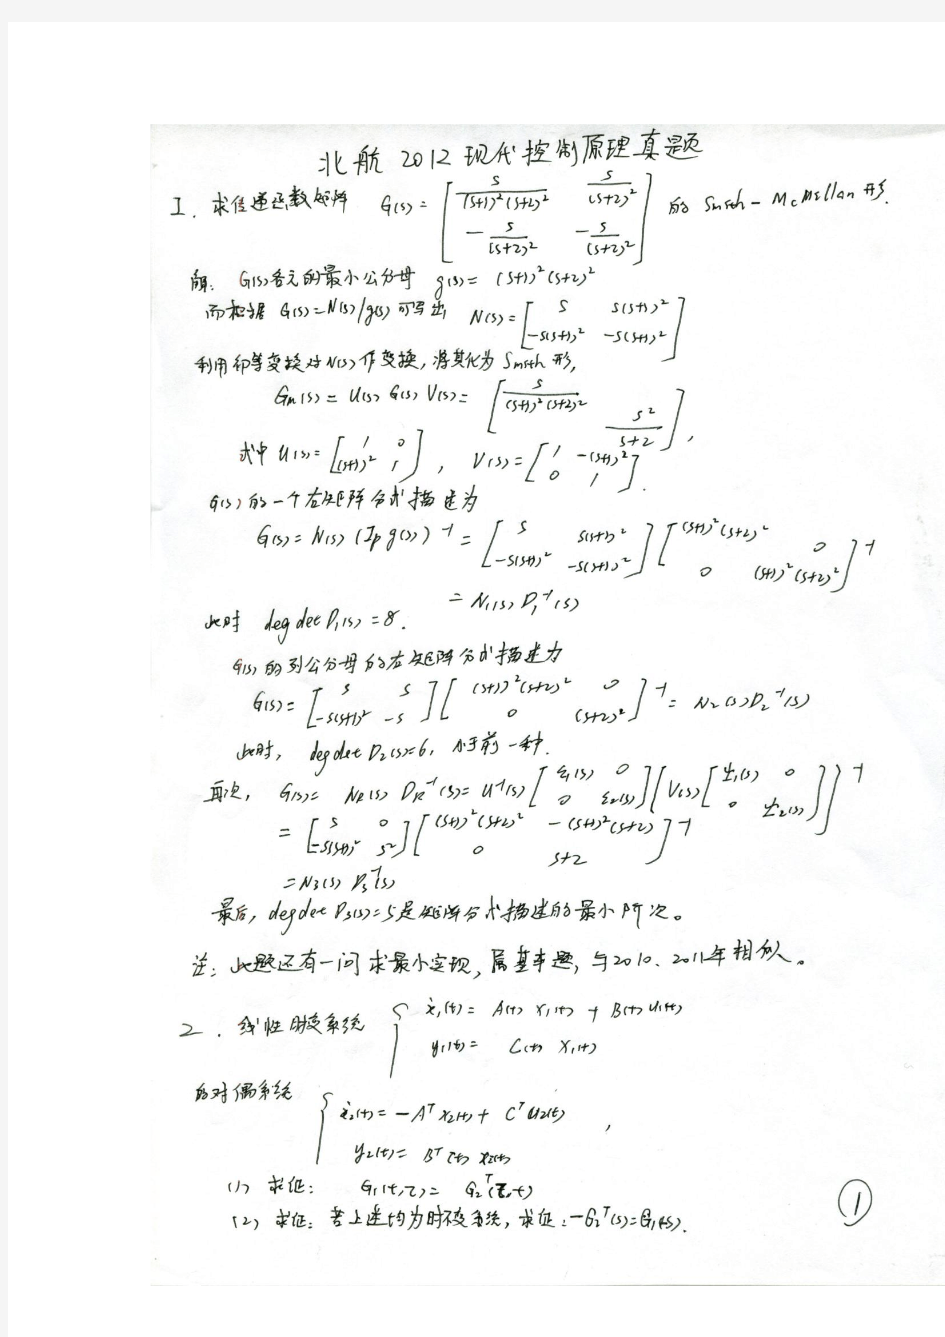 北航 2012 现代控制原理真题
1. 求传递函数矩阵 G(s) = [ s/((s+1)²(s+2)²)  s/(s+2)² ; -s/(s+2)²  -s/(s+2)² ] 的 Smith-McMillan 形.
解: G(s)各元的最小公分母 g(s) = (s+1)²(s+2)²
而根据 G(s)=N(s)/g(s) 可写出 N(s) = [ s  s(s+1)² ; -s(s+1)²  -s(s+1)² ]
利用初等变换对N(s)作变换,将其化为 Smith 形,
Gm(s) = U(s) G(s) V(s) = [ s/((s+1)²(s+2)²)  ;  s²/(s+2) ],
式中 U(s) = [ 1 0 ; (s+1)² 1 ], V(s) = [ 1 -(s+1)² ; 0 1 ].
G(s)的一个右矩阵分式描述为
G(s) = N(s) (Ip g(s))⁻¹ = [ s  s(s+1)² ; -s(s+1)²  -s(s+1)² ] [ (s+1)²(s+2)²  0 ; 0  (s+1)²(s+2)² ]⁻¹
= N1(s) D1⁻¹(s)
此时 deg det D1(s) = 8.
G(s)的列公分母的右矩阵分式描述为
G(s) = [ s  s ; -s(s+1)²  -s ] [ (s+1)²(s+2)²  0 ; 0  (s+2)² ]⁻¹ = N2(s) D2⁻¹(s)
此时, deg det D2(s)=6, 小于前一种.
再次, G(s) = NR(s) DR⁻¹(s) = U⁻¹(s) [ ε1(s) 0 ; 0 ε2(s) ] [ V(s) [ ψ1(s) 0 ; 0 ψ2(s) ] ]⁻¹
= [ s  0 ; -s(s+1)²  s² ] [ (s+1)²(s+2)²  -(s+1)²(s+2) ; 0  s+2 ]⁻¹
= N3(s) D3⁻¹(s)
最后, deg det D3(s)=5是矩阵分式描述的最小阶次。
注: 此题还有一问求最小实现,属基本题,与2010、2011年相似。
2. 线性时变系统 { ẋ1(t) = A(t) x1(t) + B(t) u1(t)
y1(t) = C(t) x1(t)
的对偶系统 { ẋ2(t) = -Aᵀ x2(t) + Cᵀ u2(t)
y2(t) = Bᵀ(t) x2(t) ,
(1) 求证: G1(t,τ) = G2ᵀ(τ,t)
(2) 求证: 若上述均为时不变系统, 求证: -G2ᵀ(s) = G1(-s).
①